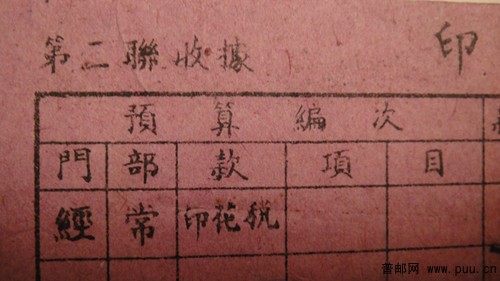 第二聯收據 印
預算編次
門 部 款 項 目
經 常 印花税
普邮网 www.puu.cn